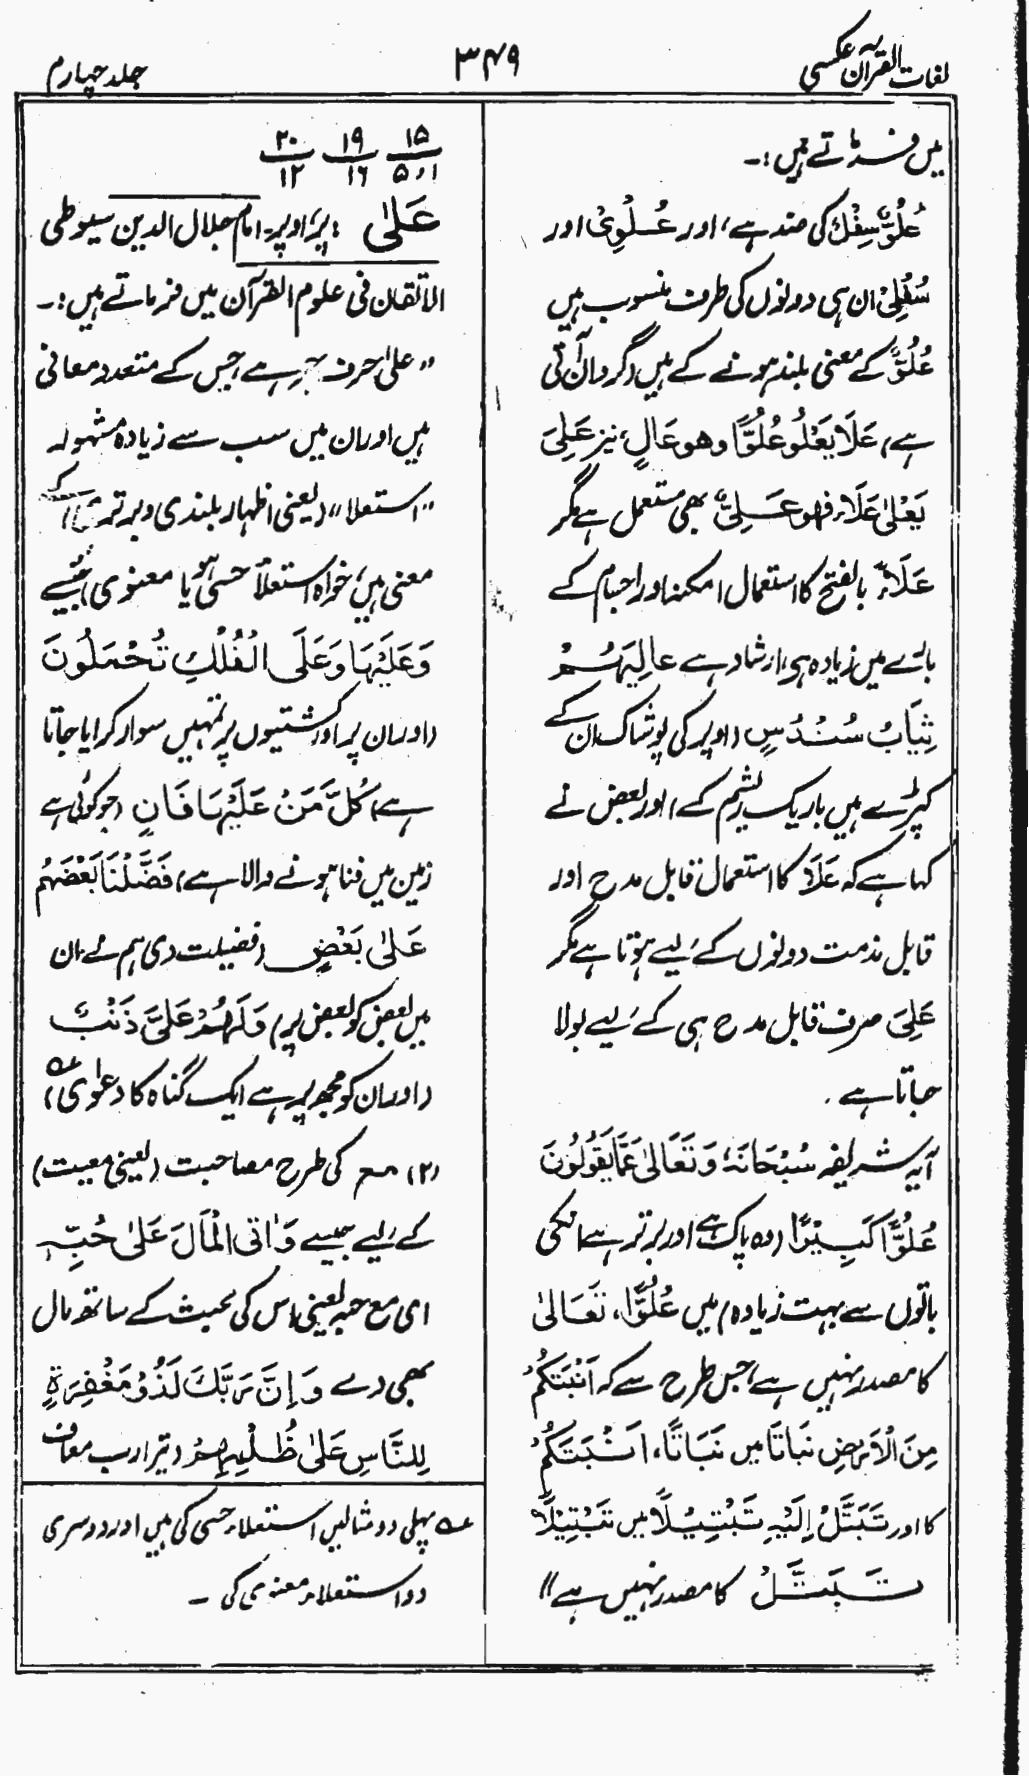 لغات القرآن عکسی
۳۴۹
جلد چہارم
میں فرماتے ہیں :۔
عُلْوٌ سِفْلٌ کی ضد ہے، اور عُلْوِیٌ اور
سُفْلِیٌ ان ہی دونوں کی طرف منسوب ہیں
عُلُوٌّ کے معنی بلند ہونے کے ہیں (گردان آتی
ہے) عَلَا یَعْلُو عُلُوًّا وھو عَالٍ، نیز عَلِیَ
یَعْلٰی عَلَاءً فھو عَلِیٌّ بھی مستعمل ہے مگر
عَلَاءٌ بالفتح کا استعمال امکنہ اور اجسام کے
بارے میں زیادہ ہی، ارشاد ہے عَالِیَہُمْ
ثِیَابُ سُنْدُسٍ (اوپر کی پوشاک ان کے
کپڑے ہیں باریک ریشم کے) اور بعض نے
کہا ہے کہ عَلَا کا استعمال قابل مدح اور
قابل مذمت دونوں کے لیے ہوتا ہے مگر
عَلِیَ صرف قابل مدح ہی کے لیے بولا
جاتا ہے ۔
آیہ شریفہ سُبْحَانَہٗ وَ تَعَالٰی عَمَّا یَقُوْلُوْنَ
عُلُوًّا کَبِیْرًا (وہ پاک ہے اور برتر ہے انکی
باتوں سے بہت زیادہ) میں عُلُوًّا، تَعَالٰی
کا مصدر نہیں ہے، جس طرح سے کہ اَنْبَتَکُمْ
مِنَ الْاَرْضِ نَبَاتًا میں نَبَاتًا، اَنْبَتَکُمْ
کا اور تَبَتَّلْ اِلَیْہِ تَبْتِیْلًا میں تَبْتِیْلًا
تَبَتَّلْ کا مصدر نہیں ہے"
۱۵ ۱۹ ۲۰
۱ر۵ ۱۶ ۱۲
عَلٰی : پر، اوپر۔ امام جلال الدین سیوطی
الاتقان فی علوم القرآن میں فرماتے ہیں :۔
"علیٰ حرف جر ہے، جس کے متعدد معانی
ہیں اور ان میں سب سے زیادہ مشہور
"استعلا" (یعنی اظہار بلندی و برتری) کے
معنی ہیں، خواہ استعلاً حسی ہو یا معنوی، جیسے
وَعَلَیْہَا وَعَلَی الْفُلْکِ تُحْمَلُوْنَ
(اور ان پر اور کشتیوں پر تمہیں سوار کرایا جاتا
ہے) کُلُّ مَنْ عَلَیْہَا فَانٍ (جو کوئی ہے
زمین میں فنا ہونے والا ہے) فَضَّلْنَا بَعْضَہُمْ
عَلٰی بَعْضٍ (فضیلت دی ہم نے ان
میں بعض کو بعض پر) وَلَہُمْ عَلَیَّ ذَنْبٌ
(اور ان کو مجھ پر ہے ایک گناہ کا دعوٰی) عہ
(۲) مع کی طرح مصاحبت (یعنی معیت)
کے لیے جیسے وَاٰتَی الْمَالَ عَلٰی حُبِّہٖ
ای مع حبہ یعنی اس کی محبت کے ساتھ مال
بھی دے وَ اِنَّ رَبَّکَ لَذُوْ مَغْفِرَۃٍ
لِلنَّاسِ عَلٰی ظُلْمِہِمْ (تیرا رب معاف
عہ پہلی دو مثالیں استعلاء حسی کی ہیں اور دوسری
دو استعلاء معنوی کی ۔